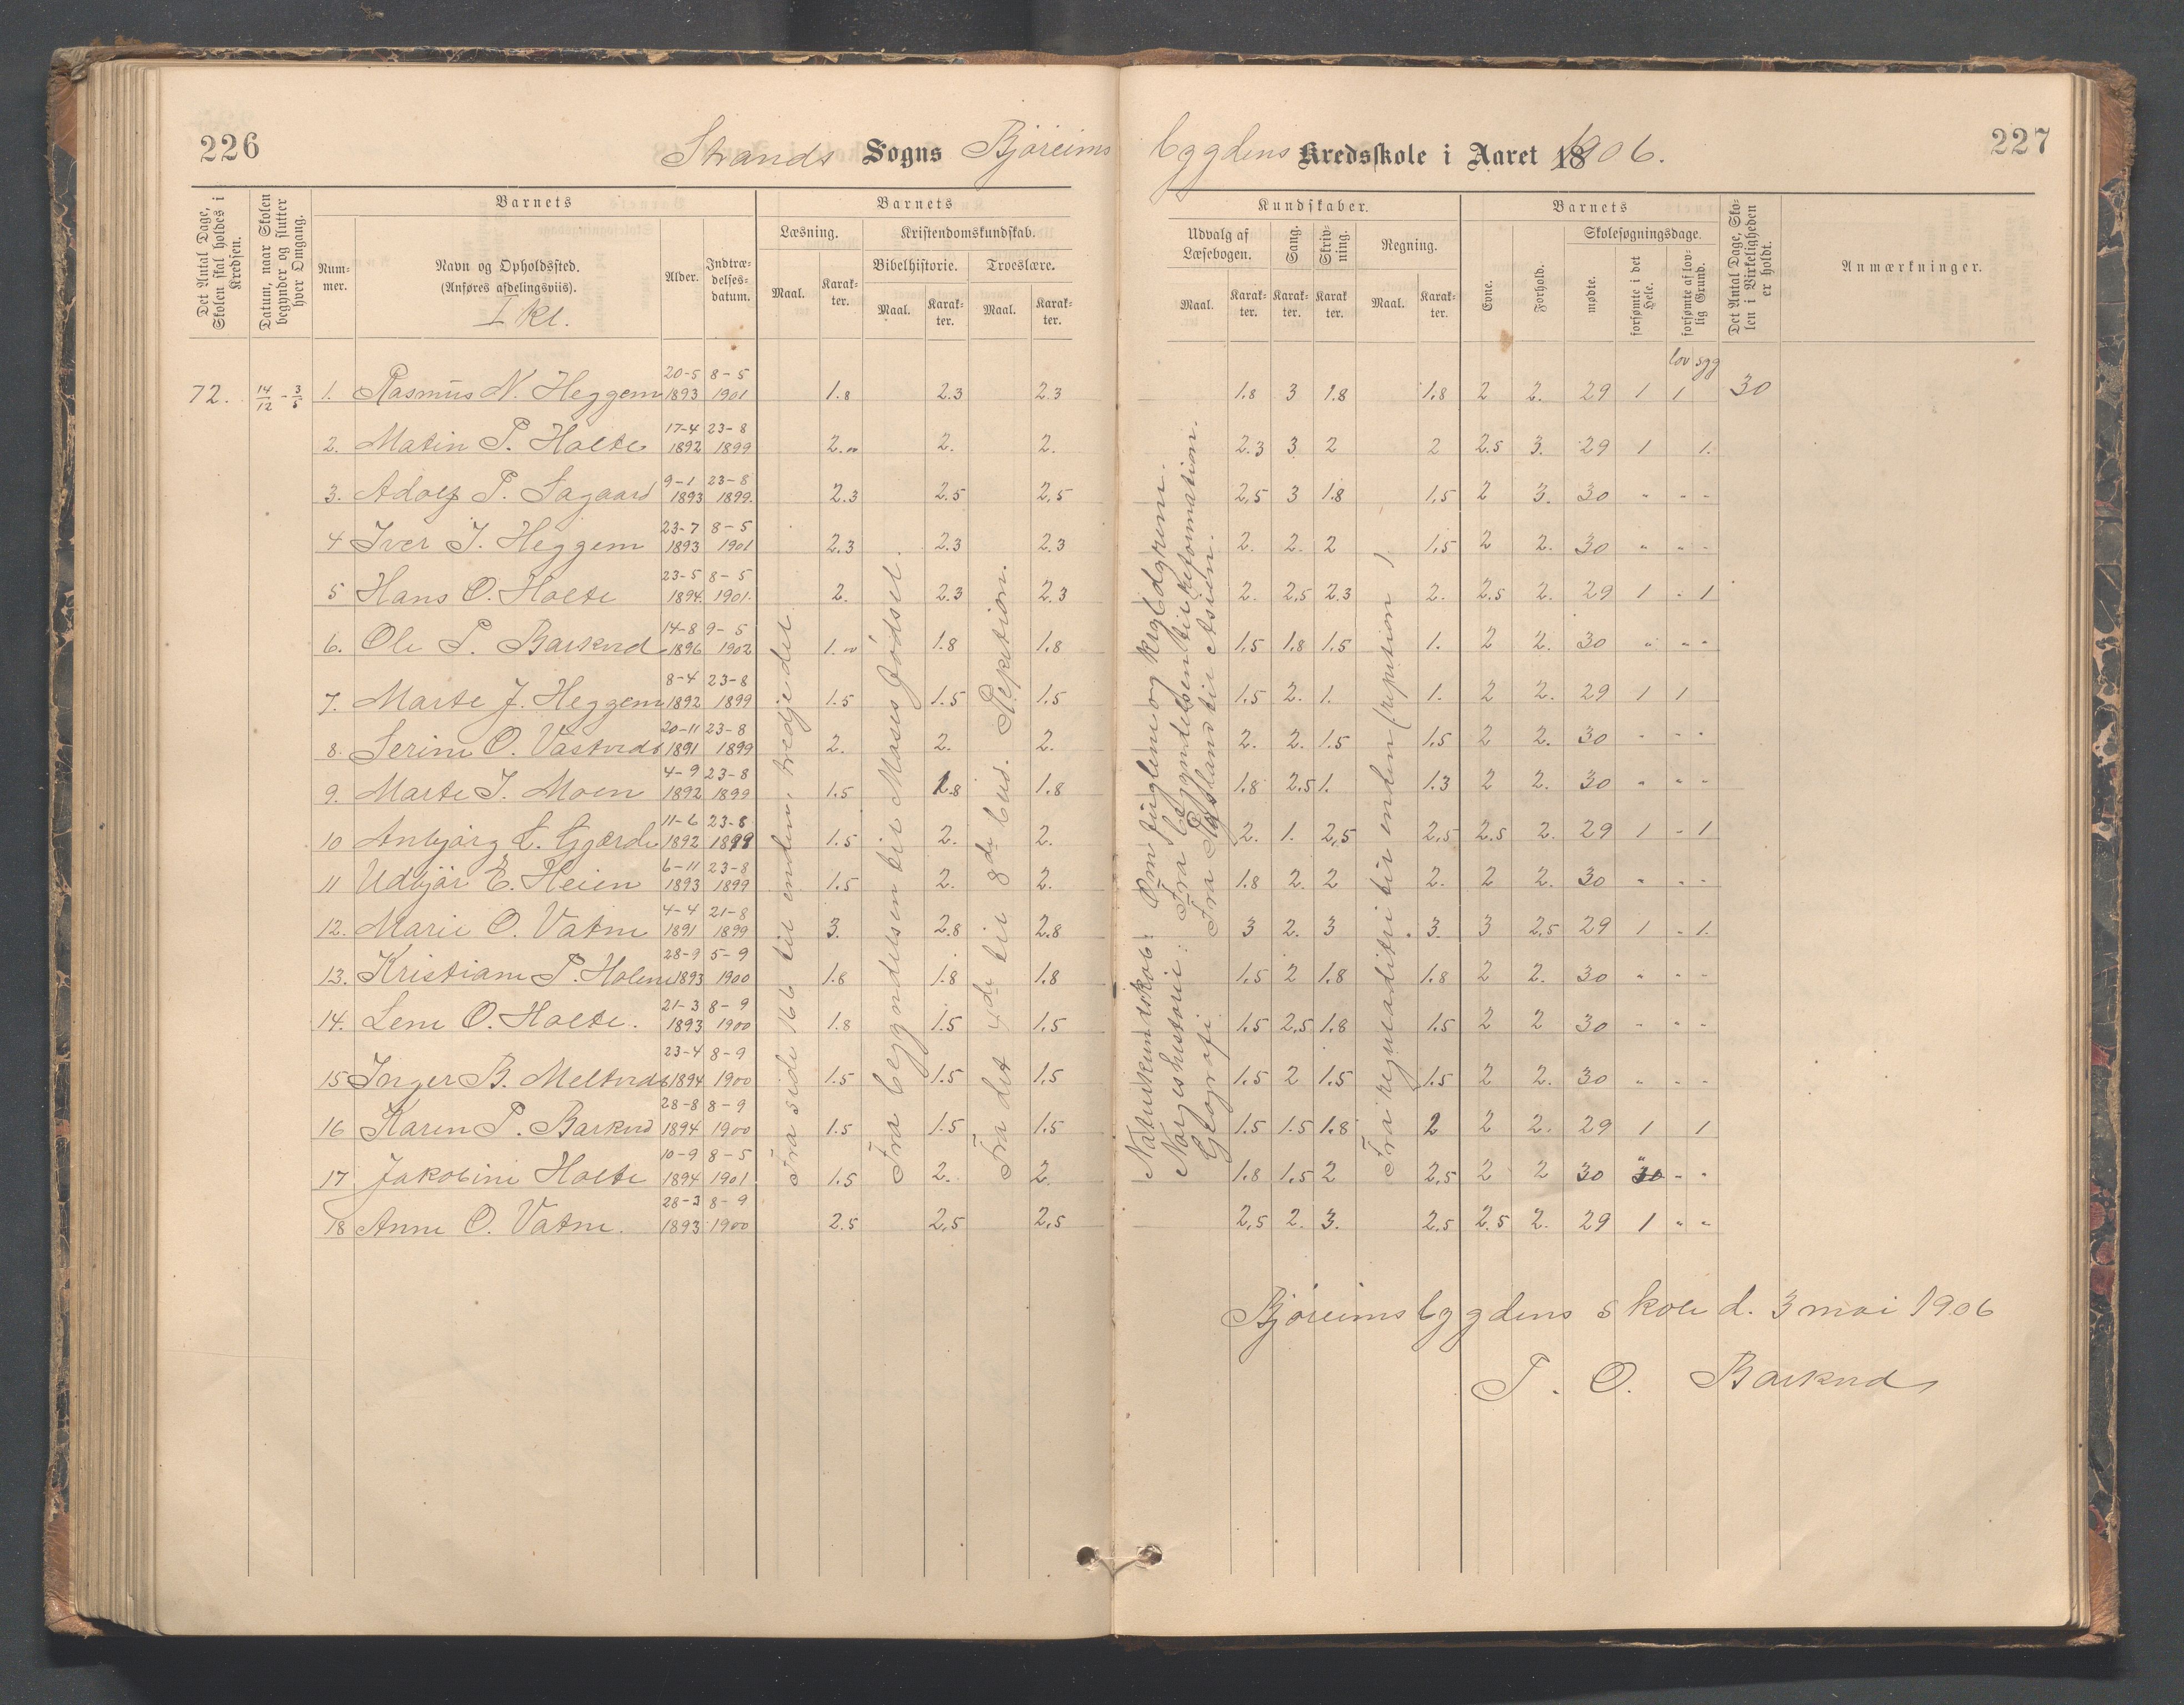 226
Strands Sogns Bjøreims
bygdens Kredsskole i Aaret 1906.
227
Det Antal Dage, Skolen skal holdes i Kredsen.
Datum, naar Skolen begynder og slutter hver Omgang.
Barnets
Num-mer.
Navn og Opholdssted.
(Anføres afdelingsviis).
I kl.
Alder.
Indtræ-delses-datum.
Barnets
Læsning.
Maal.
Karak-ter.
Kristendomskundskab.
Bibelhistorie.
Troeslære.
Maal.
Karak-ter.
Maal.
Karak-ter.
Kundskaber.
Udvalg af Læsebogen.
Sang.
Skriv-ning.
Regning.
Maal.
Karak-ter.
Karak-ter.
Karak-ter.
Maal.
Karak-ter.
Barnets
Evne.
Forhold.
Skolesøgningsdage.
mødte.
forsømte i det Hele.
forsømte af lov-lig Grund.
Det Antal Dage, Sko-len i Virkeligheden er holdt.
Anmærkninger.
lov syg
72. 14/12 - 3/5 1. Rasmus N. Heggem 20-5 1893 8-5 1901 1.8 2.3 2.3 1.8 3 1.8 1.8 2 2. 29 1 1 30
2. Matin P. Holte 17-4 1892 23-8 1899 2.00 2. 2. 2.3 3 2 2 2.5 3. 29 1 1.
3. Adolf P. Sagaard 9-1 1893 23-8 1899. 2.3 2.5 2.5 2.5 3 1.8 1.5 2 3. 30 " " "
4 Iver J. Heggem 23-7 1893 8-5 1901 2.3 2.3 2.3 2. 2. 2 1.5 2 2. 30 " " "
5 Hans O. Holte 23-5 1894. 8-5 1901. 2. 2.3 2.3 2. 2.5 2.3 2. 2.5 2. 29 1 " 1
6. Ole P. Barkved 14-8 1896 9-5 1902 1.00 1.8 1.8 1.5 1.8 1.5 1. 2 2. 30 " " "
7. Marte J. Heggem 8-4 1892 23-8 1899 1.5 1.5 1.5 1.5 2. 1. 1. 2 2. 29 1 1
8. Serine O. Vastveds 20-11 1891 23-8 1899 2. 2. 2. 2. 2. 1.5 1.5 2 2. 30 " " "
9. Marte J. Moen 4-9 1892 23-8 1899 1.5 1.8 1.8 1.8 2.5 1. 1.3 2 2. 30 " " "
10 Anbjørg L. Gjærde 11-6 1892 23-8 1899 1.5 2. 2. 2. 1. 2.5 2.5 2.5 2. 29 1 " 1
11 Udbjør E. Heien 6-11 1893 23-8 1899 1.5 2. 2. 1.8 2. 2 2. 2 2. 30 " " "
12. Marie O. Vatne 4-4 1891 21-8 1899 3. 2.8 2.8 3 2. 3 3. 3 2.5 29 1 " 1.
13. Kristiane P. Holene 28-9 1893 5-9 1900 1.8 1.8 1.8 1.5 2 1.8 1.8 2 2. 30 " " "
14. Lene O. Holte. 21-3 1893 8-9 1900 1.8 1.5 1.5 1.5 2.5 1.8 1.5 2 2 30 " " "
15 Inger B. Meltveds 23-4 1894 8-9 1900 1.5 1.5 1.5 1.5 2 1.5 1.5 2 2. 30 " " "
16 Karen P. Barkved 28-8 1894 8-9 1900 1.5 1.5 1.5 1.5 1.5 1.8 2 2 2. 29 1 1
17 Jakobine Holte 10-9 1894 8-5 1901 1.5 2. 2. 1.8 1.5 2 2.5 2 2 30 " " "
18 Anne O. Vatne. 28-3 1893 8-9 1900 2.5 2.5 2.5 2.5 2. 3. 2.5 2.5 2. 29 1 " "
Fra side 166 til enden, tredje del
Fra begyndelsen til Moses Fødsel.
Fra det 4de til 8de bud. Repetion.
Naturkundskab: Om fuglene og krybdyrene.
Norgeshistorie: Fra begyndelsen til reformationen.
Geografi: Fra Rusland til Asien.
Fra reguladitri til enden (reption)
Bjøreimsbygdens skole d. 3 mai 1906
P. O. Barkved